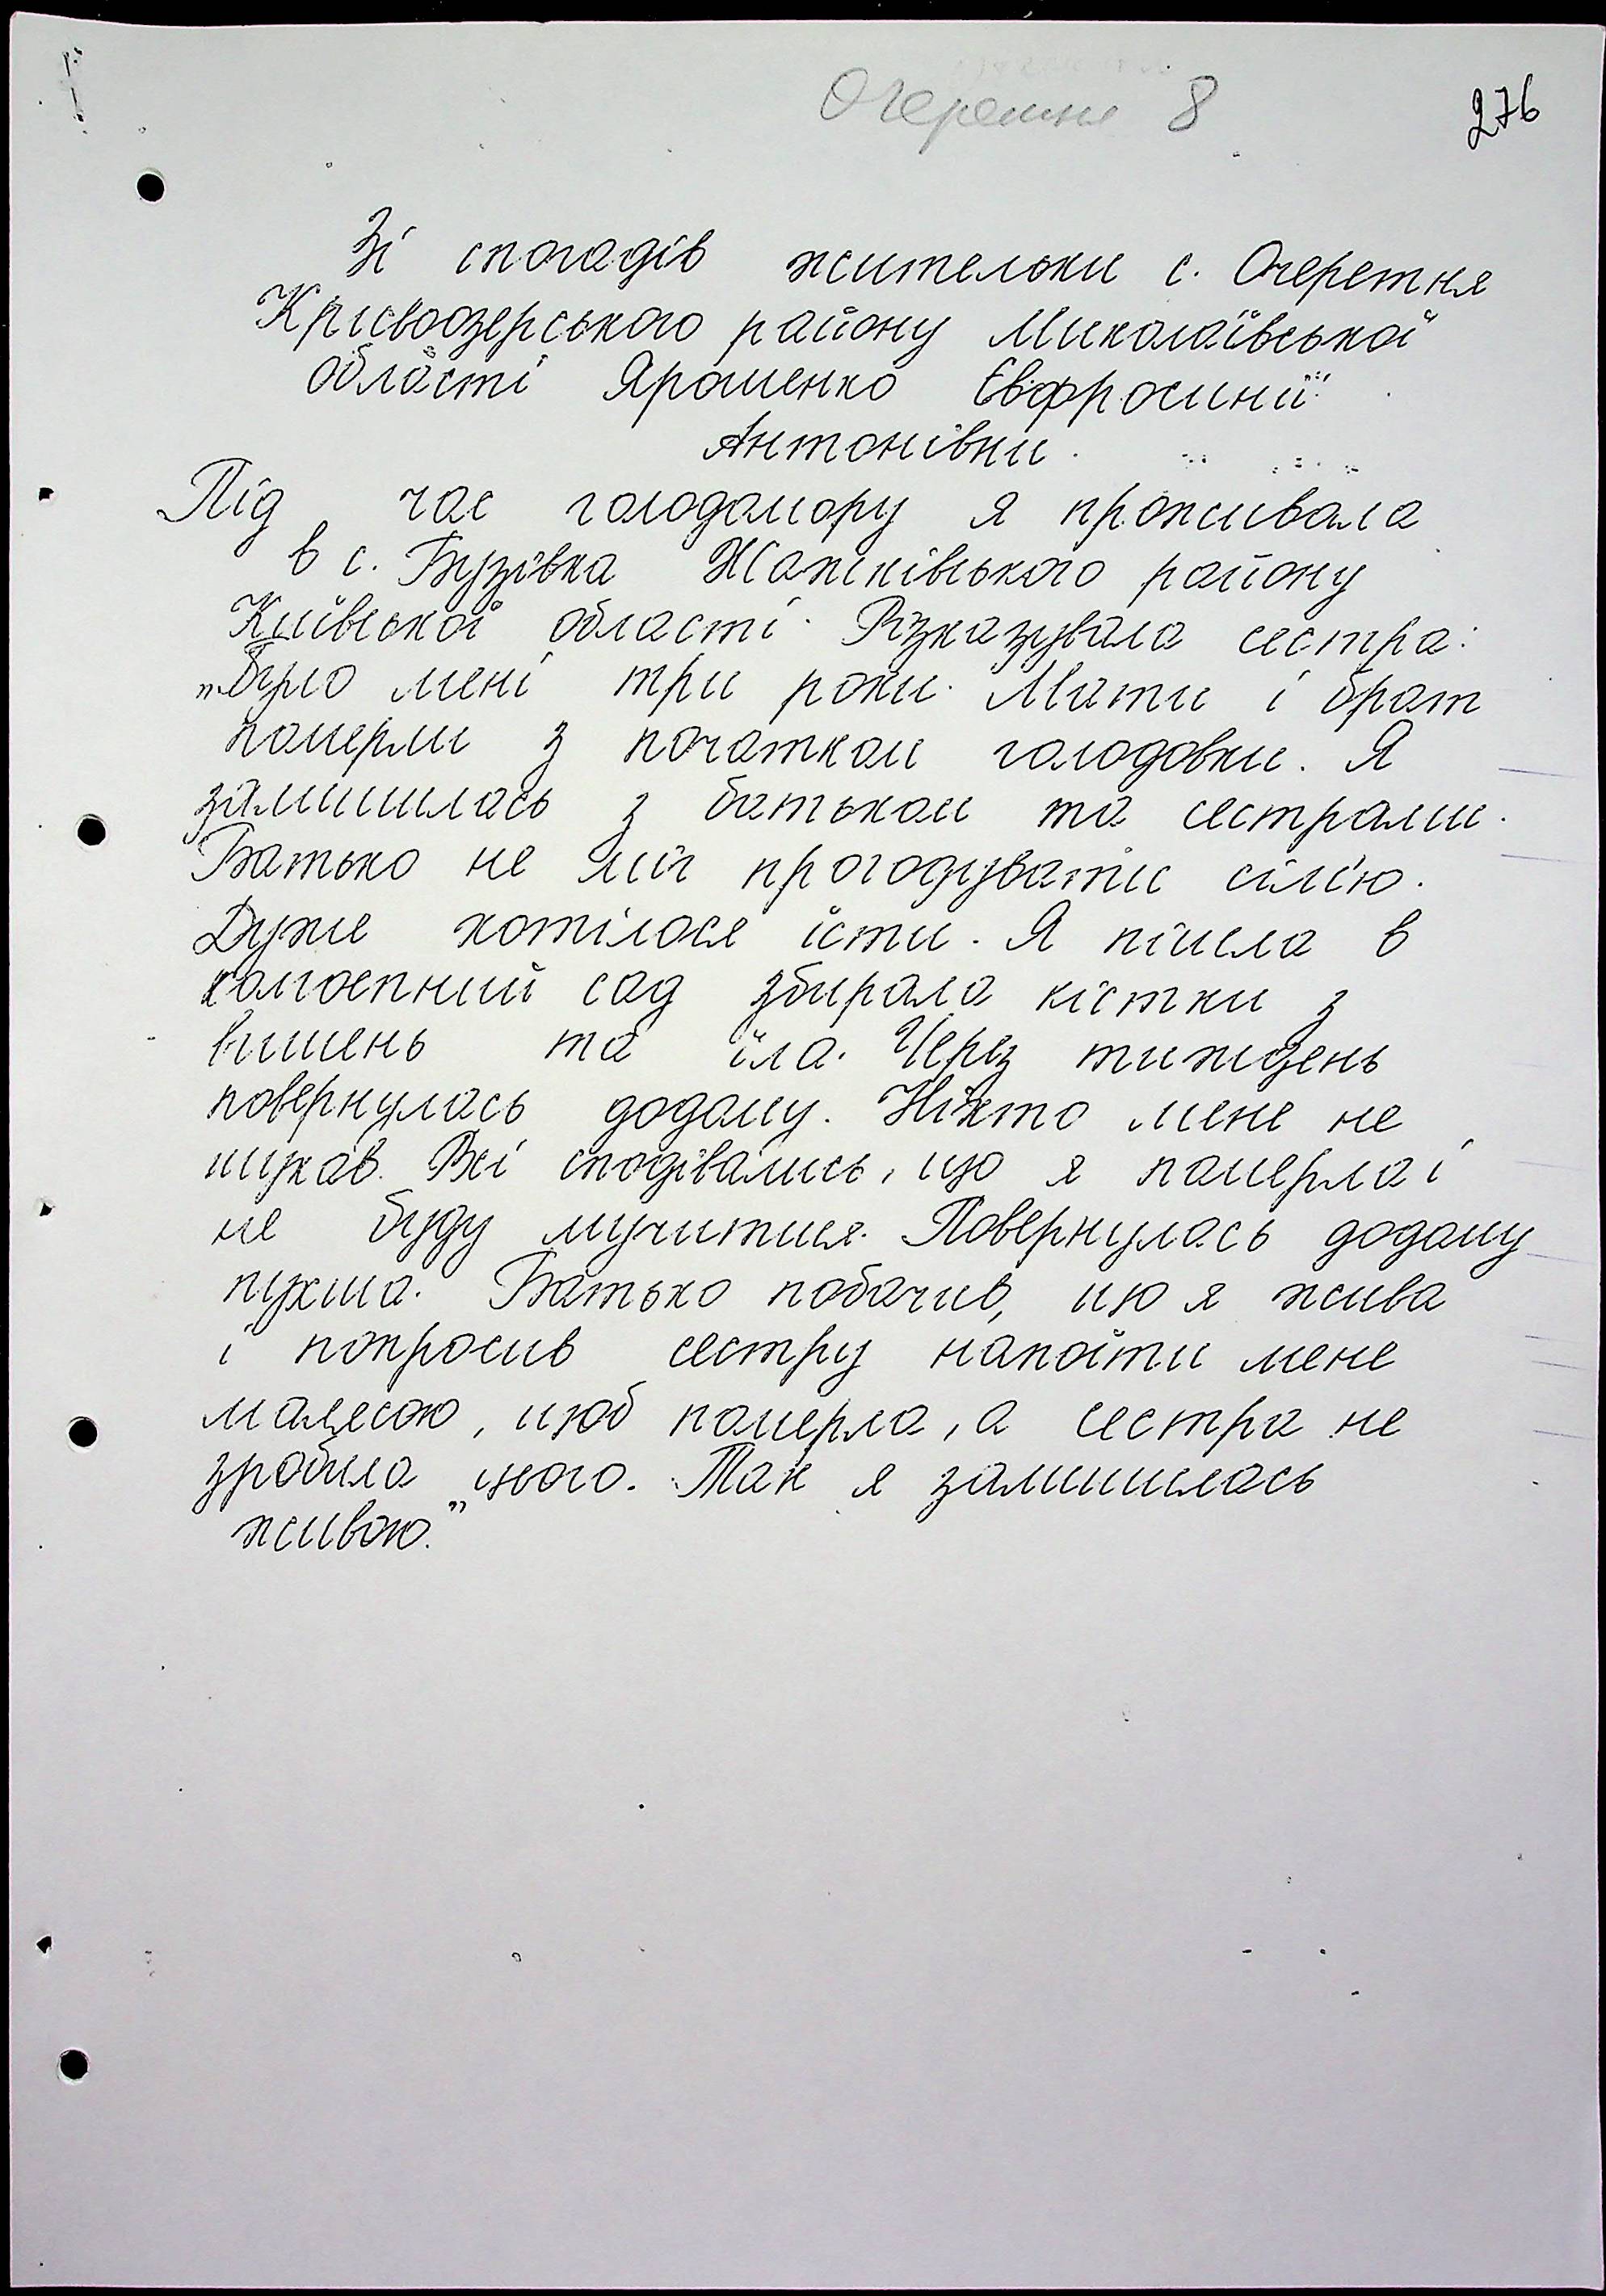 Очеретня 8
276
Зі спогадів жительки с. Очеретня
Кривоозерського району Миколаївської
області Ярошенко Євфросинії
Антонівни.
Під час голодомору я проживала
в с. Бузівка Жашківського району
Київської області. Різказувала сестра:
„Було мені три роки. Мати і брат
померли з початком голодовки. Я
залишилась з батьком та сестрами.
Батько не міг прогодувати сім'ю.
Дуже хотілося їсти. Я пішла в
колгоспний сад збирала кістки з
вишень та їла. Через тиждень
повернулась додому. Ніхто мене не
шукав. Всі сподівались, що я померла і
не буду мучитися. Повернулась додому
пухша. Батько побачив, що я жива
і попросив сестру напоїти мене
малясою, щоб померла, а сестра не
зробила цього. Так я залишилась
живою."